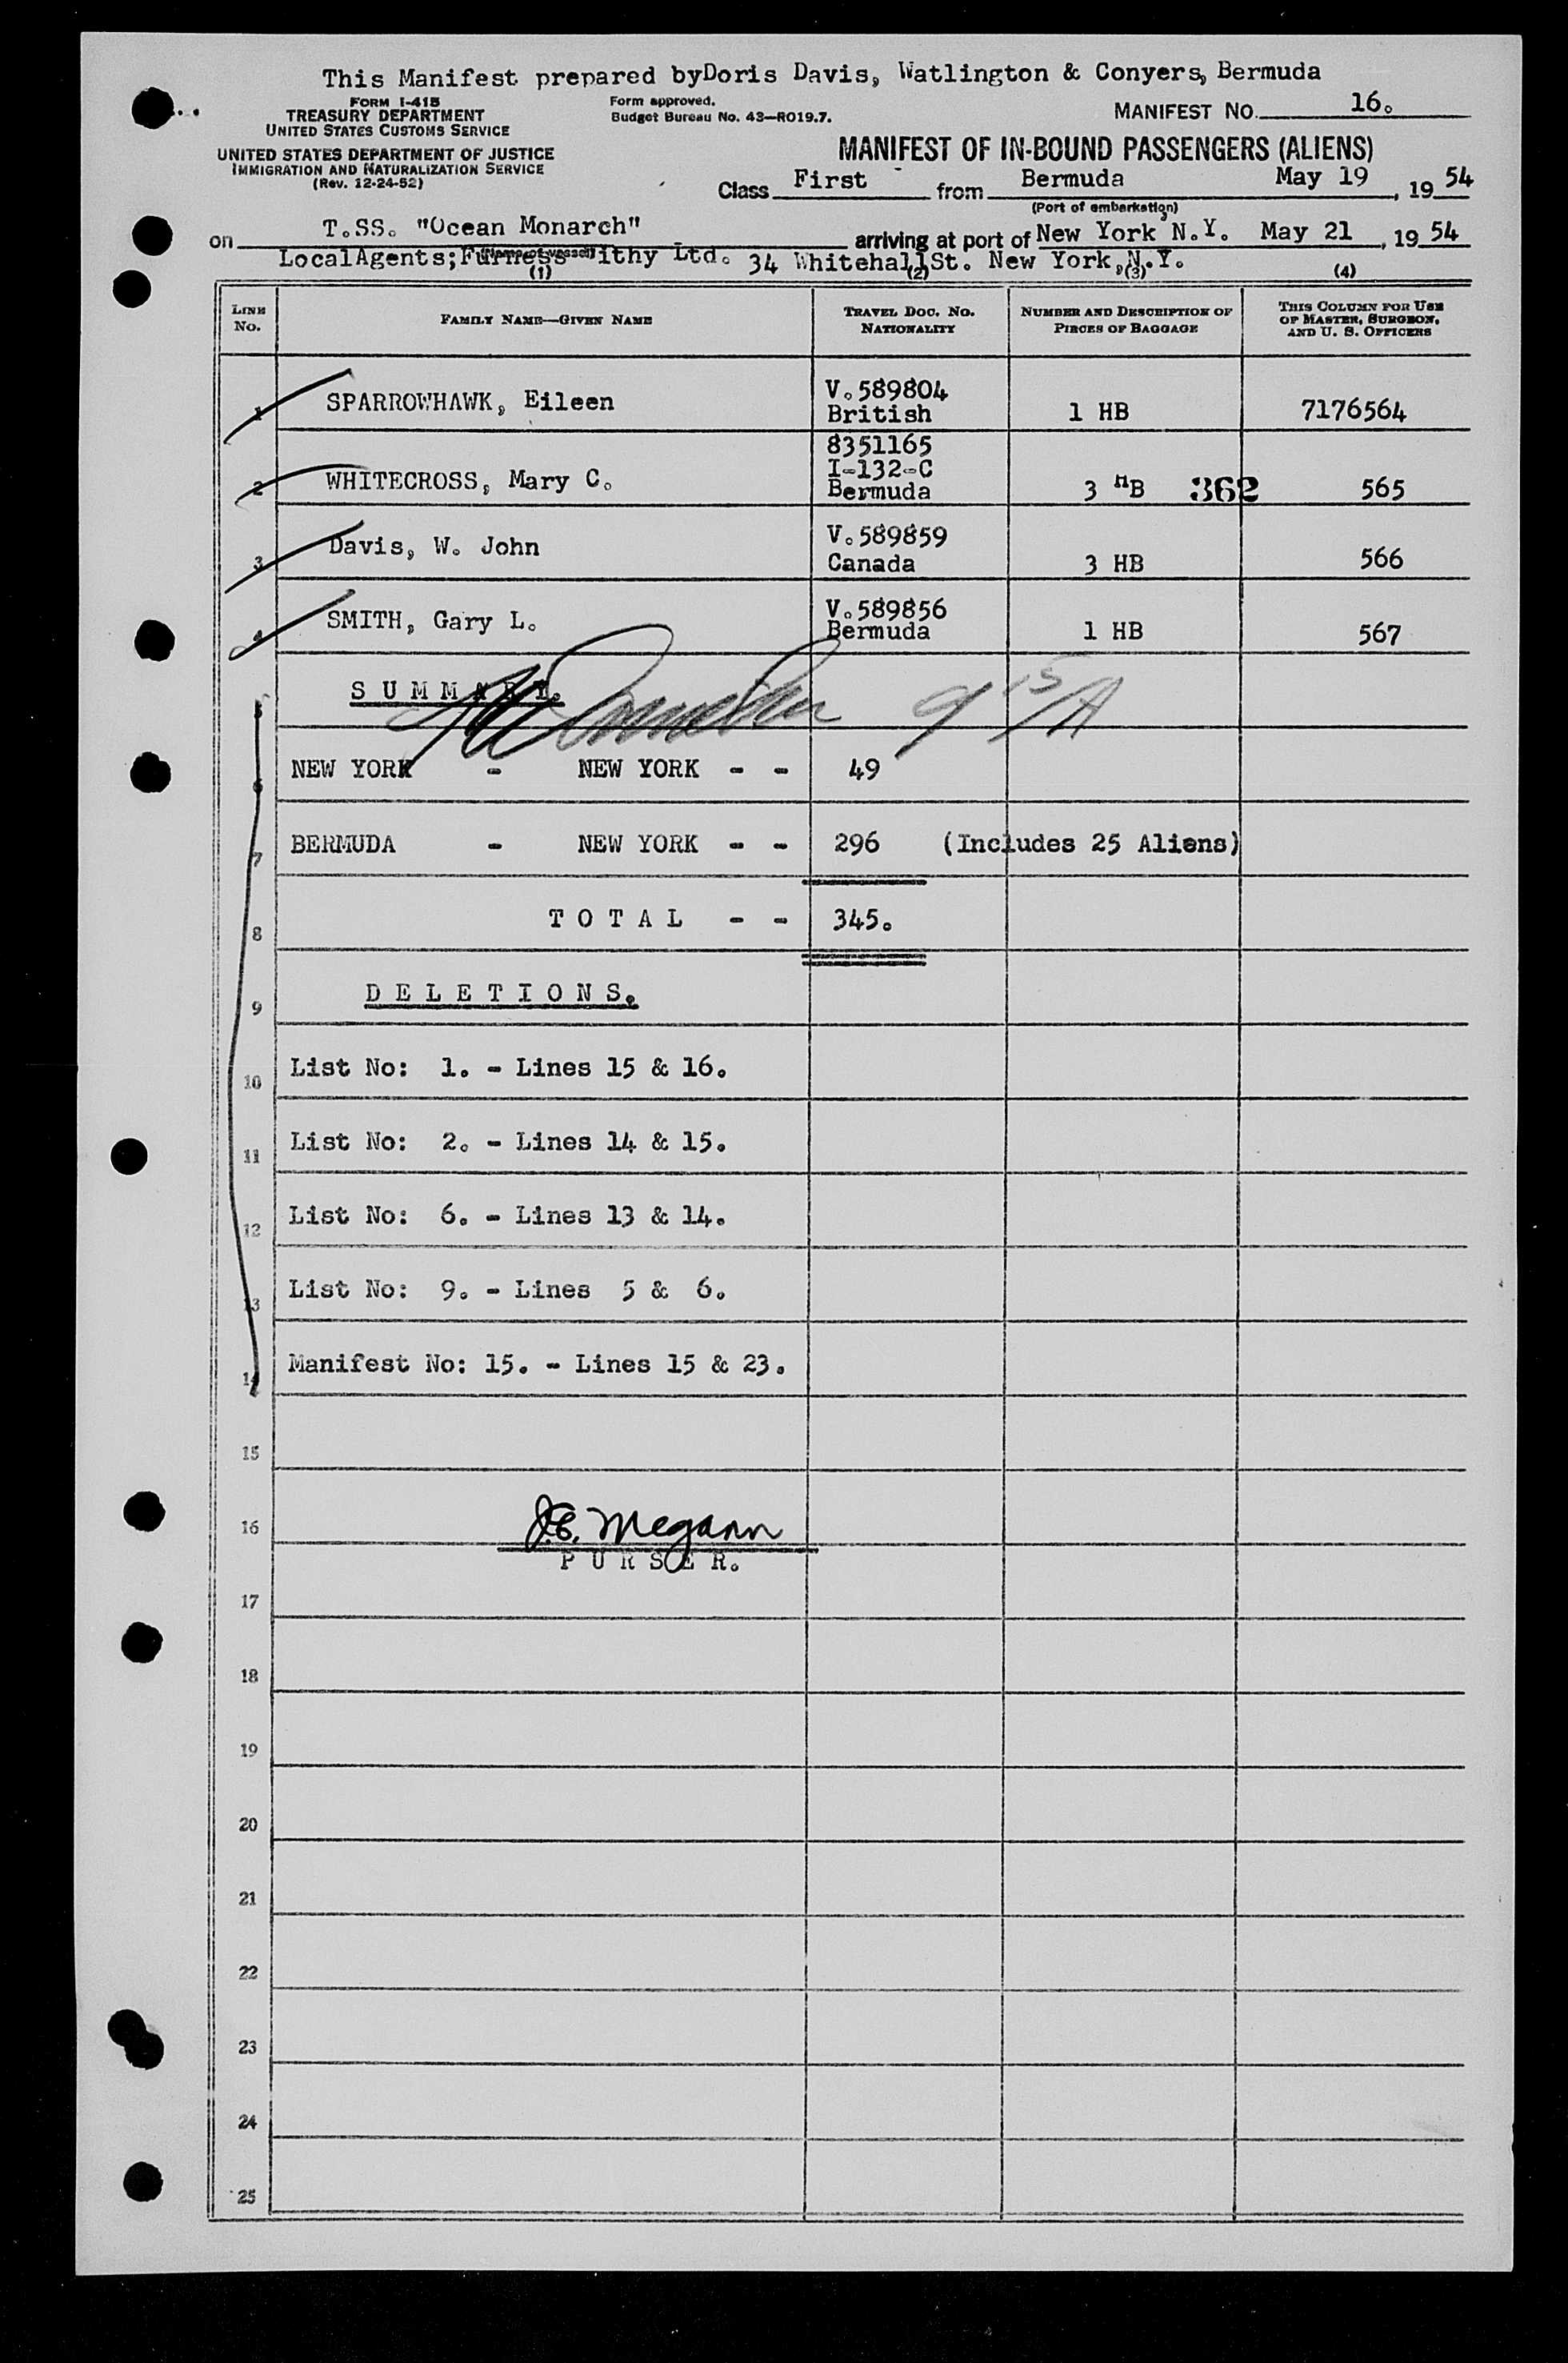 This Manifest prepared byDoris Davis, Watlington & Conyers, Bermuda
FORM I-415
TREASURY DEPARTMENT
UNITED STATES CUSTOMS SERVICE
UNITED STATES DEPARTMENT OF JUSTICE
IMMIGRATION AND NATURALIZATION SERVICE
(Rev. 12-24-52)
Form approved.
Budget Bureau No. 43—RO19.7.
MANIFEST NO. 16.
MANIFEST OF IN-BOUND PASSENGERS (ALIENS)
Class First from Bermuda May 19, 19 54
(Port of embarkation)
on T.SS. "Ocean Monarch" arriving at port of New York, N.Y. May 21, 19 54
(Name of vessel)
LocalAgents; Furness Withy Ltd. 34 Whitehall St. New York, N.Y.
(1) (2) (3) (4)
LINE No. FAMILY NAME—GIVEN NAME TRAVEL DOC. NO. NATIONALITY NUMBER AND DESCRIPTION OF PIECES OF BAGGAGE THIS COLUMN FOR USE OF MASTER, SURGEON, AND U. S. OFFICERS
1 SPARROWHAWK, Eileen V.589804 British 1 HB 7176564
2 WHITECROSS, Mary C. 8351165 I-132-C Bermuda 3 HB 362 565
3 Davis, W. John V.589859 Canada 3 HB 566
4 SMITH, Gary L. V.589856 Bermuda 1 HB 567
5 S U M M A R Y. 9 15/A
6 NEW YORK - NEW YORK - - 49
7 BERMUDA - NEW YORK - - 296 (Includes 25 Aliens)
8 T O T A L - - 345.
9 D E L E T I O N S.
10 List No: 1. - Lines 15 & 16.
11 List No: 2. - Lines 14 & 15.
12 List No: 6. - Lines 13 & 14.
13 List No: 9. - Lines 5 & 6.
14 Manifest No: 15. - Lines 15 & 23.
15
16 J.E. Megann
P U R S E R.
17
18
19
20
21
22
23
24
25